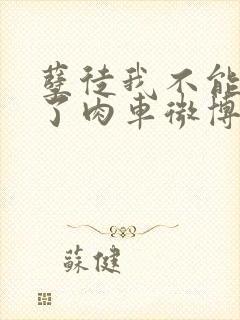 孽徒我不能
了肉车微博
蘇健